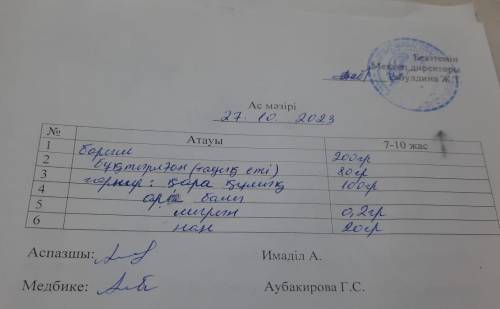 Бекітемін
Мектеп директоры
Ас мәзірі
27. 10. 2023
№ Атауы 7-10 жас
1 борщ 200гр
2 бұқтырылған (тауық еті) 80гр
3 гарнир: қара құмық 100гр
4
5 0,2гр
6 нан 20гр
Аспазшы: Имаділ А.
Медбике: Аубакирова Г.С.